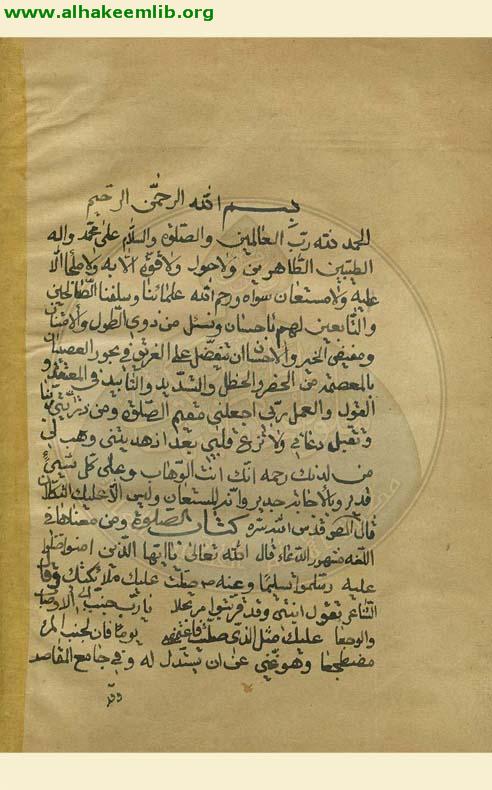 www.alhakeemlib.org
بسم الله الرحمن الرحيم
الحمد لله رب العالمين والصلوة والسلام على محمد واله
الطيبين الطاهرين ولا حول ولا قوة الا به ولا ملجأ الا
عليه ولا مستعان سواه ورحم الله علمائنا وسلفنا الصالحين
والتابعين لهم باحسان ونسئل من ذوي الطول والامتنان
ومفيض الخير والاحسان ان يتفضل على الغريق في بحور العصيان
بالعصمة من الخطل والتسديد والتأييد في المعتقد و
القول والعمل ربي اجعلني مقيم الصلوة ومن ذريتي ربنا
وتقبل دعائي ولا تزغ قلبي بعد اذ هديتني وهب لي
من لدنك رحمة انك انت الوهاب وعلى كل شيئ
قدير وبالاجابة جدير وانه المستعان وليس الا عليك التكلان
قال المصنف قدس الله سره كتاب الصلوة ومن معناها في
اللغة مشهور الدعاء قال الله تعالى يا ايها الذين امنوا صلوا
عليه وسلموا تسليما وعنه صلت عليك ملائكتك وقال
الشاعر تقول ابنتي وقد قربت مرتحلا يا رب جنب ابي الاوصاب
والوجعا عليك مثل الذي صليت فاغتمضي يوما فان لجنب المرء
مضطجعا وهو غني عن ان يستدل له وفي جامع المقاصد